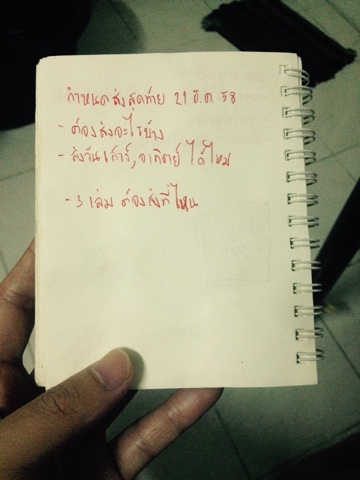 กำหนดส่งสุดท้าย 21 ธ.ค. 58
- ต้องส่งอะไรบ้าง
- ส่งวันเสาร์, อาทิตย์ ได้ไหม
- 3 เล่ม ต้องส่งที่ไหน